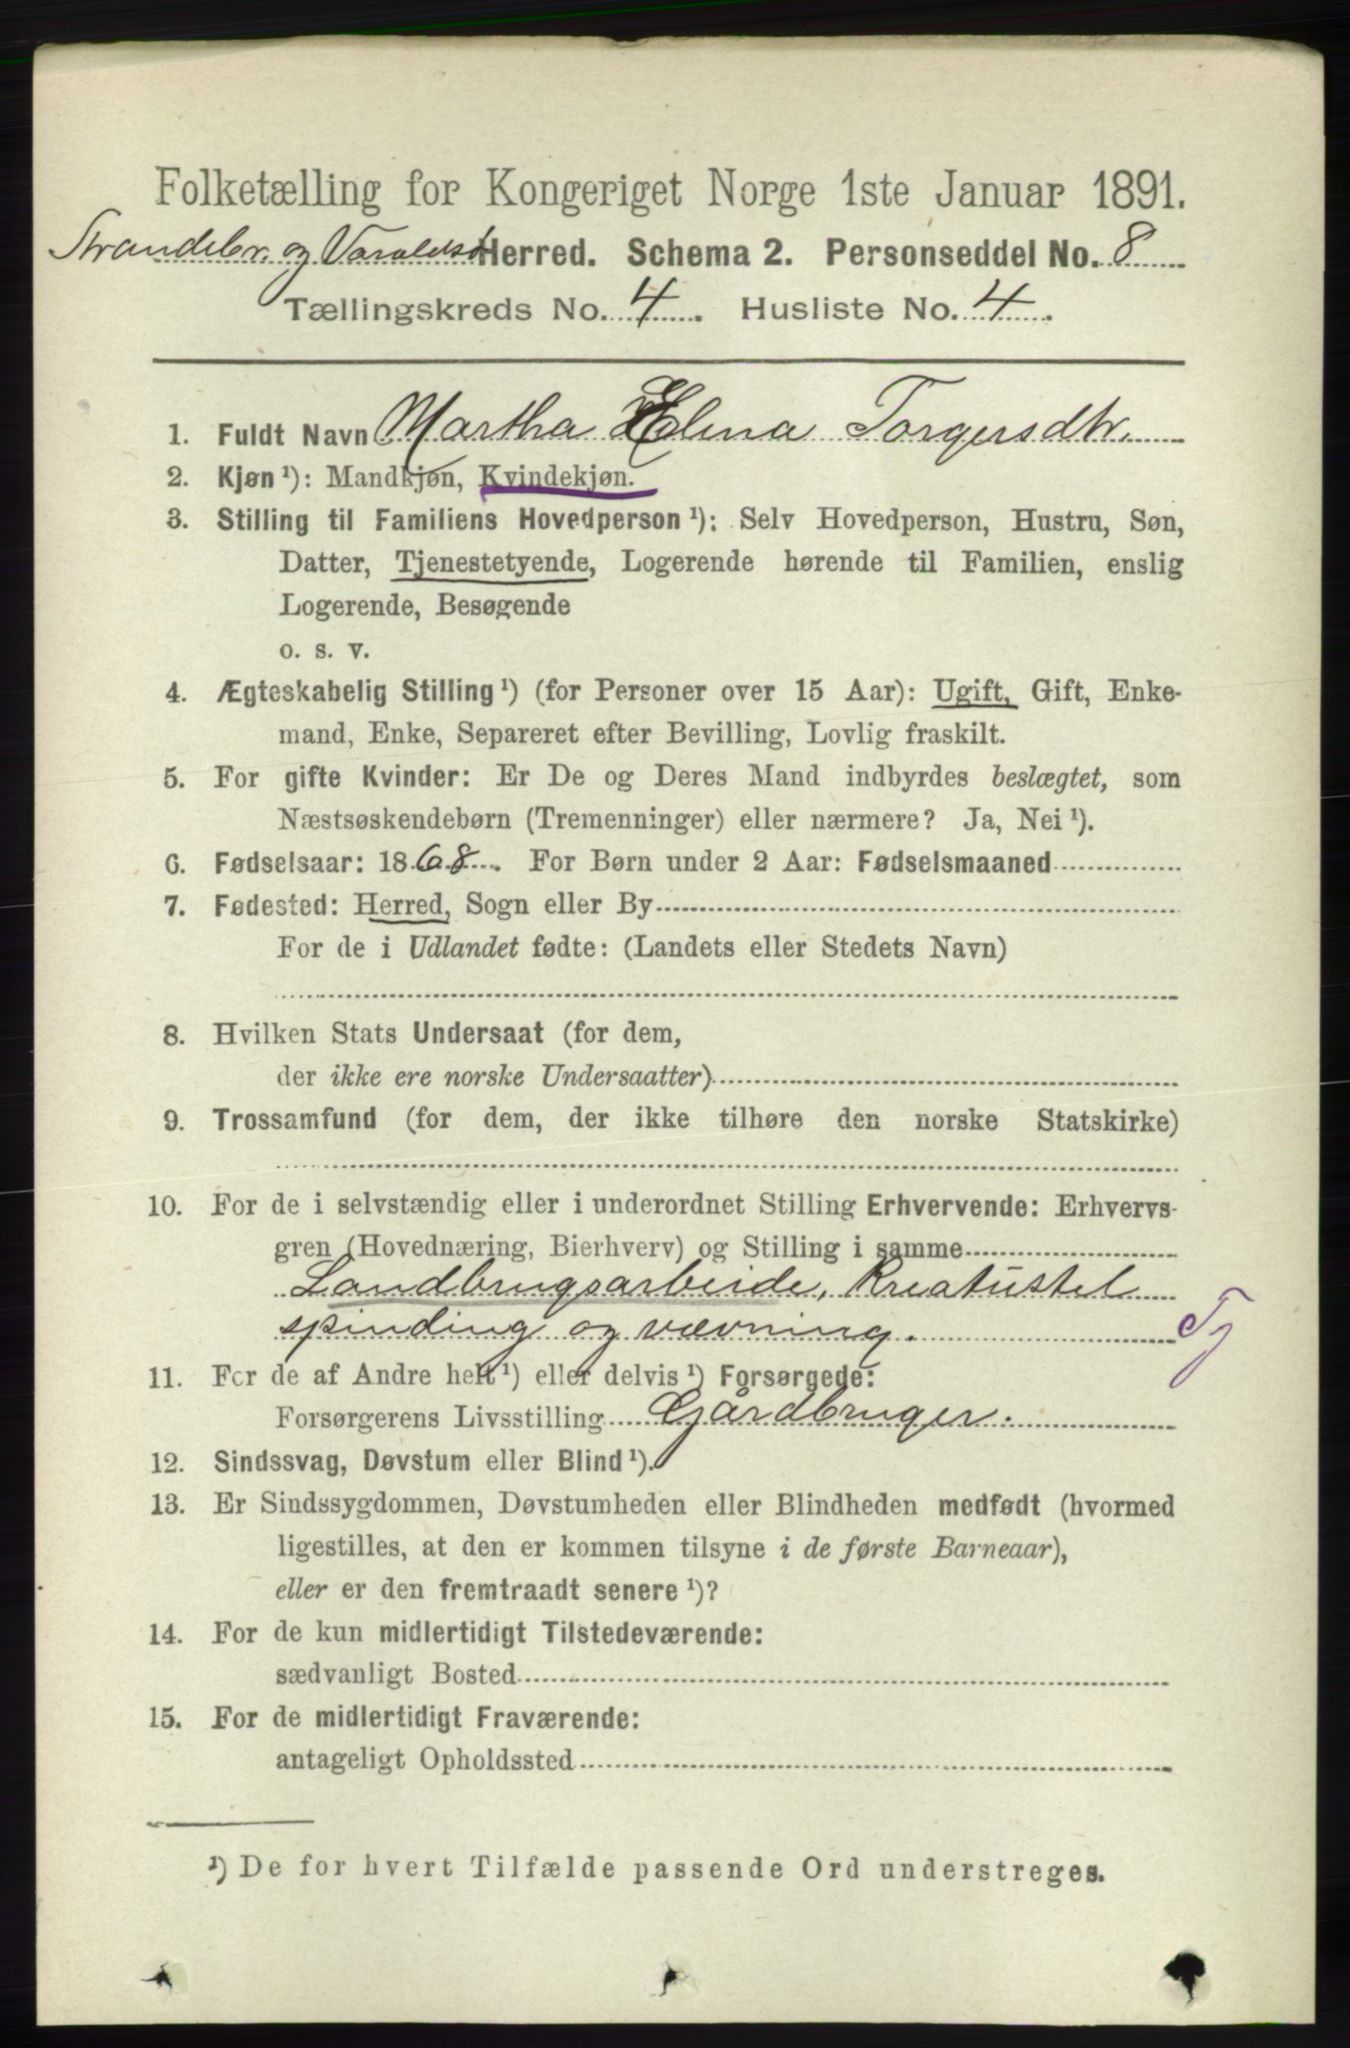 Folketælling for Kongeriget Norge 1ste Januar 1891.
Strandebr. og Varaldsø Herred. Schema 2. Personseddel No. 8
Tællingskreds No. 4. Husliste No. 4.
1. Fuldt Navn Martha Elina Torgersdtr.
2. Kjøn ¹): Mandkjøn, Kvindekjøn.
3. Stilling til Familiens Hovedperson ¹): Selv Hovedperson, Hustru, Søn,
Datter, Tjenestetyende, Logerende hørende til Familien, enslig
Logerende, Besøgende
o. s. v.
4. Ægteskabelig Stilling ¹) (for Personer over 15 Aar): Ugift, Gift, Enke-
mand, Enke, Separeret efter Bevilling, Lovlig fraskilt.
5. For gifte Kvinder: Er De og Deres Mand indbyrdes beslægtet, som
Næstsøskendebørn (Tremenninger) eller nærmere? Ja, Nei ¹).
6. Fødselsaar: 1868. For Børn under 2 Aar: Fødselsmaaned
7. Fødested: Herred, Sogn eller By
For de i Udlandet fødte: (Landets eller Stedets Navn)
8. Hvilken Stats Undersaat (for dem,
der ikke ere norske Undersaatter)
9. Trossamfund (for dem, der ikke tilhøre den norske Statskirke)
10. For de i selvstændig eller i underordnet Stilling Erhvervende: Erhvervs-
gren (Hovednæring, Bierhverv) og Stilling i samme
Landbrugsarbeide, Kreaturstel
spinding og vævning. Tj
11. For de af Andre helt ¹) eller delvis ¹) Forsørgede:
Forsørgerens Livsstilling Gårdbruger.
12. Sindssvag, Døvstum eller Blind ¹).
13. Er Sindssygdommen, Døvstumheden eller Blindheden medfødt (hvormed
ligestilles, at den er kommen tilsyne i de første Barneaar),
eller er den fremtraadt senere ¹)?
14. For de kun midlertidigt Tilstedeværende:
sædvanligt Bosted
15. For de midlertidigt Fraværende:
antageligt Opholdssted
¹) De for hvert Tilfælde passende Ord understreges.